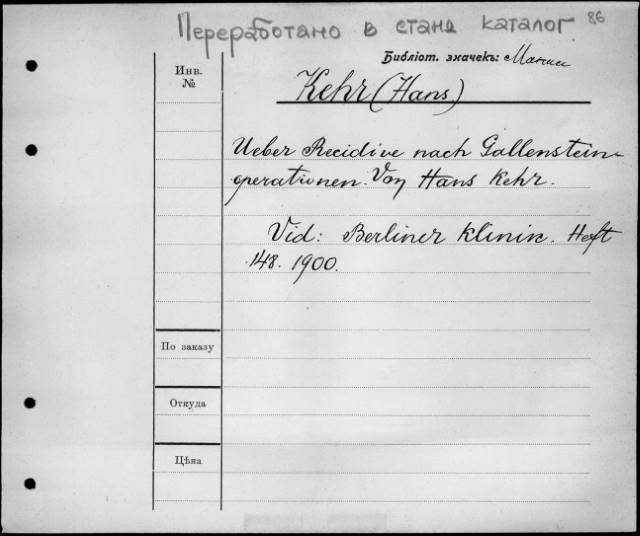 Переработано в станд каталог. 86
Библіот. значекъ:
Инв.
№
Kehr (Hans)
Ueber Recidive nach Gallenstein-
operationen. Von Hans Kehr.
Vid: Berliner Klinik. Heft
148. 1900.
По заказу
Откуда
Цѣна